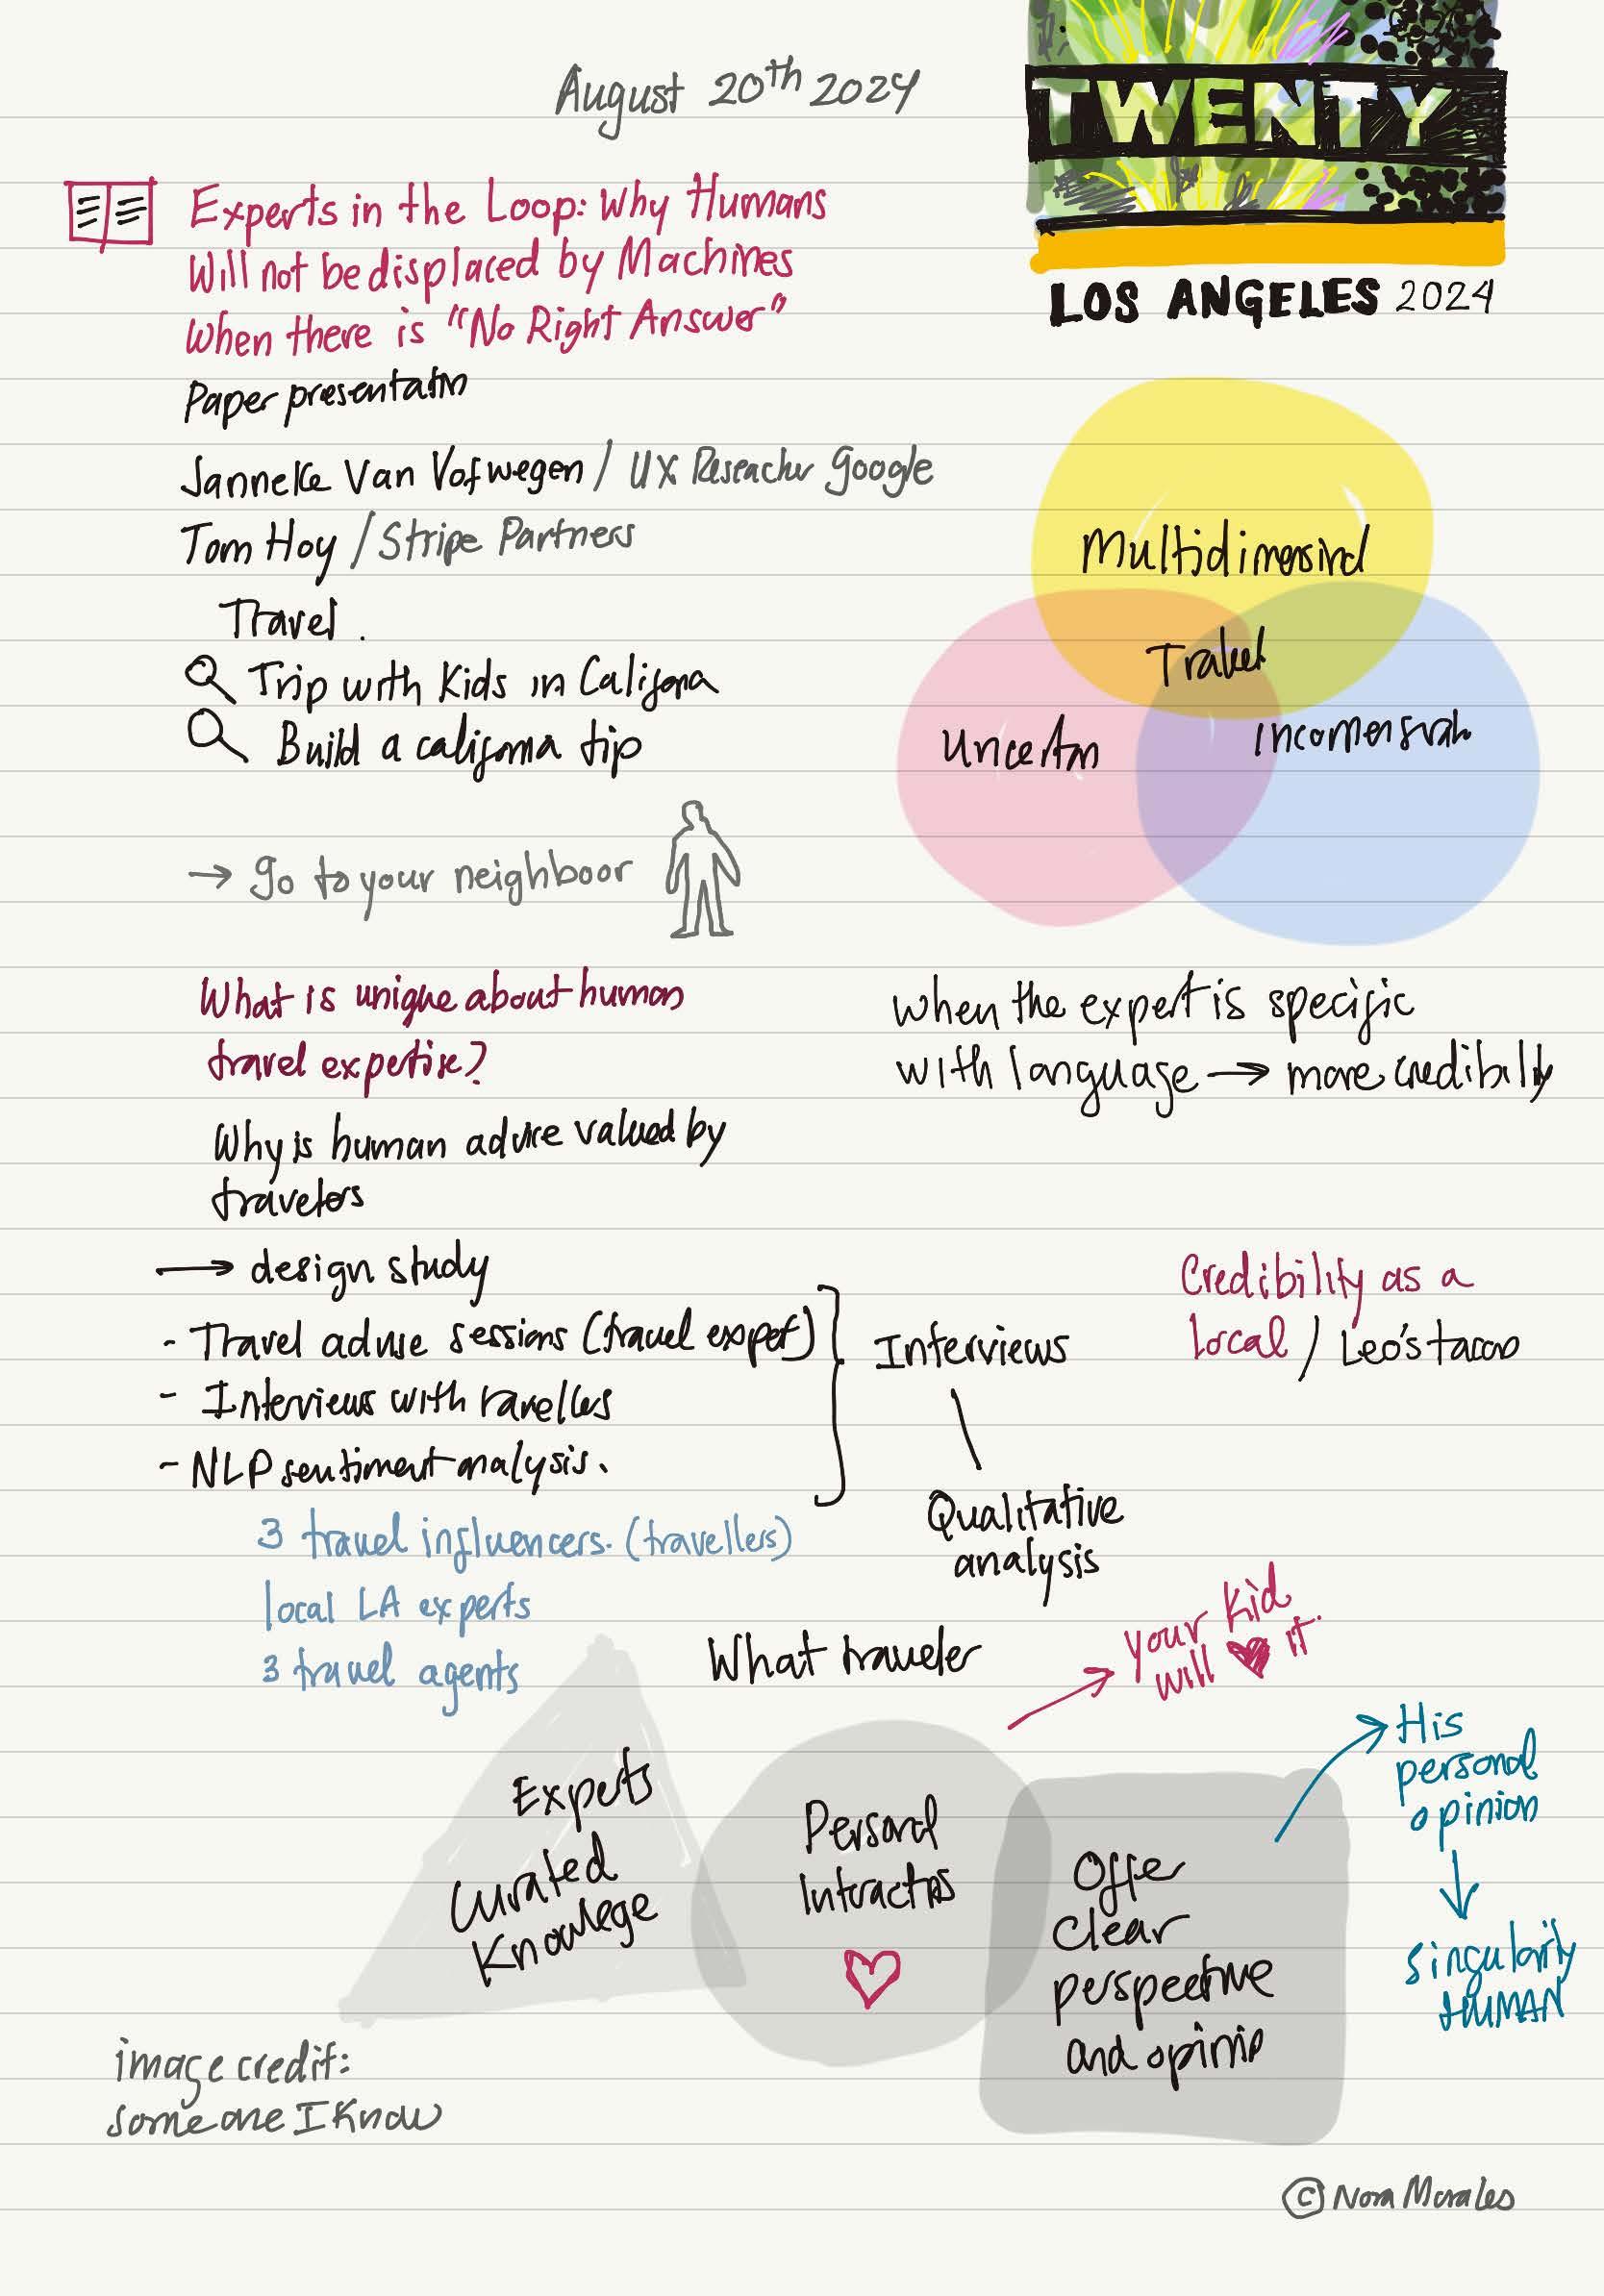 August 20th 2024
TWENTY
LOS ANGELES 2024
Experts in the Loop: Why Humans
Will not be displaced by Machines
When there is "No Right Answer"
Paper presentatn
Janneke Van Vofwegen / UX Reseacher Google
Tom Hoy / Stripe Partners
Travel.
Trip with Kids in Californa
Build a califorma tip
→ go to your neighboor
Multidimensinal
Travel
Uncertn
Incomensrab
What is unique about human
travel expertise?
Why is human advice valued by
travelors
→ design study
- Travel advise sessions (travel expert)
- Interviews with ravellers
- NLP sentiment analysis.
Interviews
Qualitative
analysis
3 travel influencers. (travellers)
local LA experts
3 travel agents
when the expert is specific
with language → more credibility
Credibility as a
local / Leo's tacos
What traveler
your Kid
will ♥ it.
Experts
Curated
Knowlege
Personal
Interactns
Offer
Clear
perspective
and opinio
His
personal
opinion
singularity
HUMAN
image credit:
someone I Know
© Nora Morales